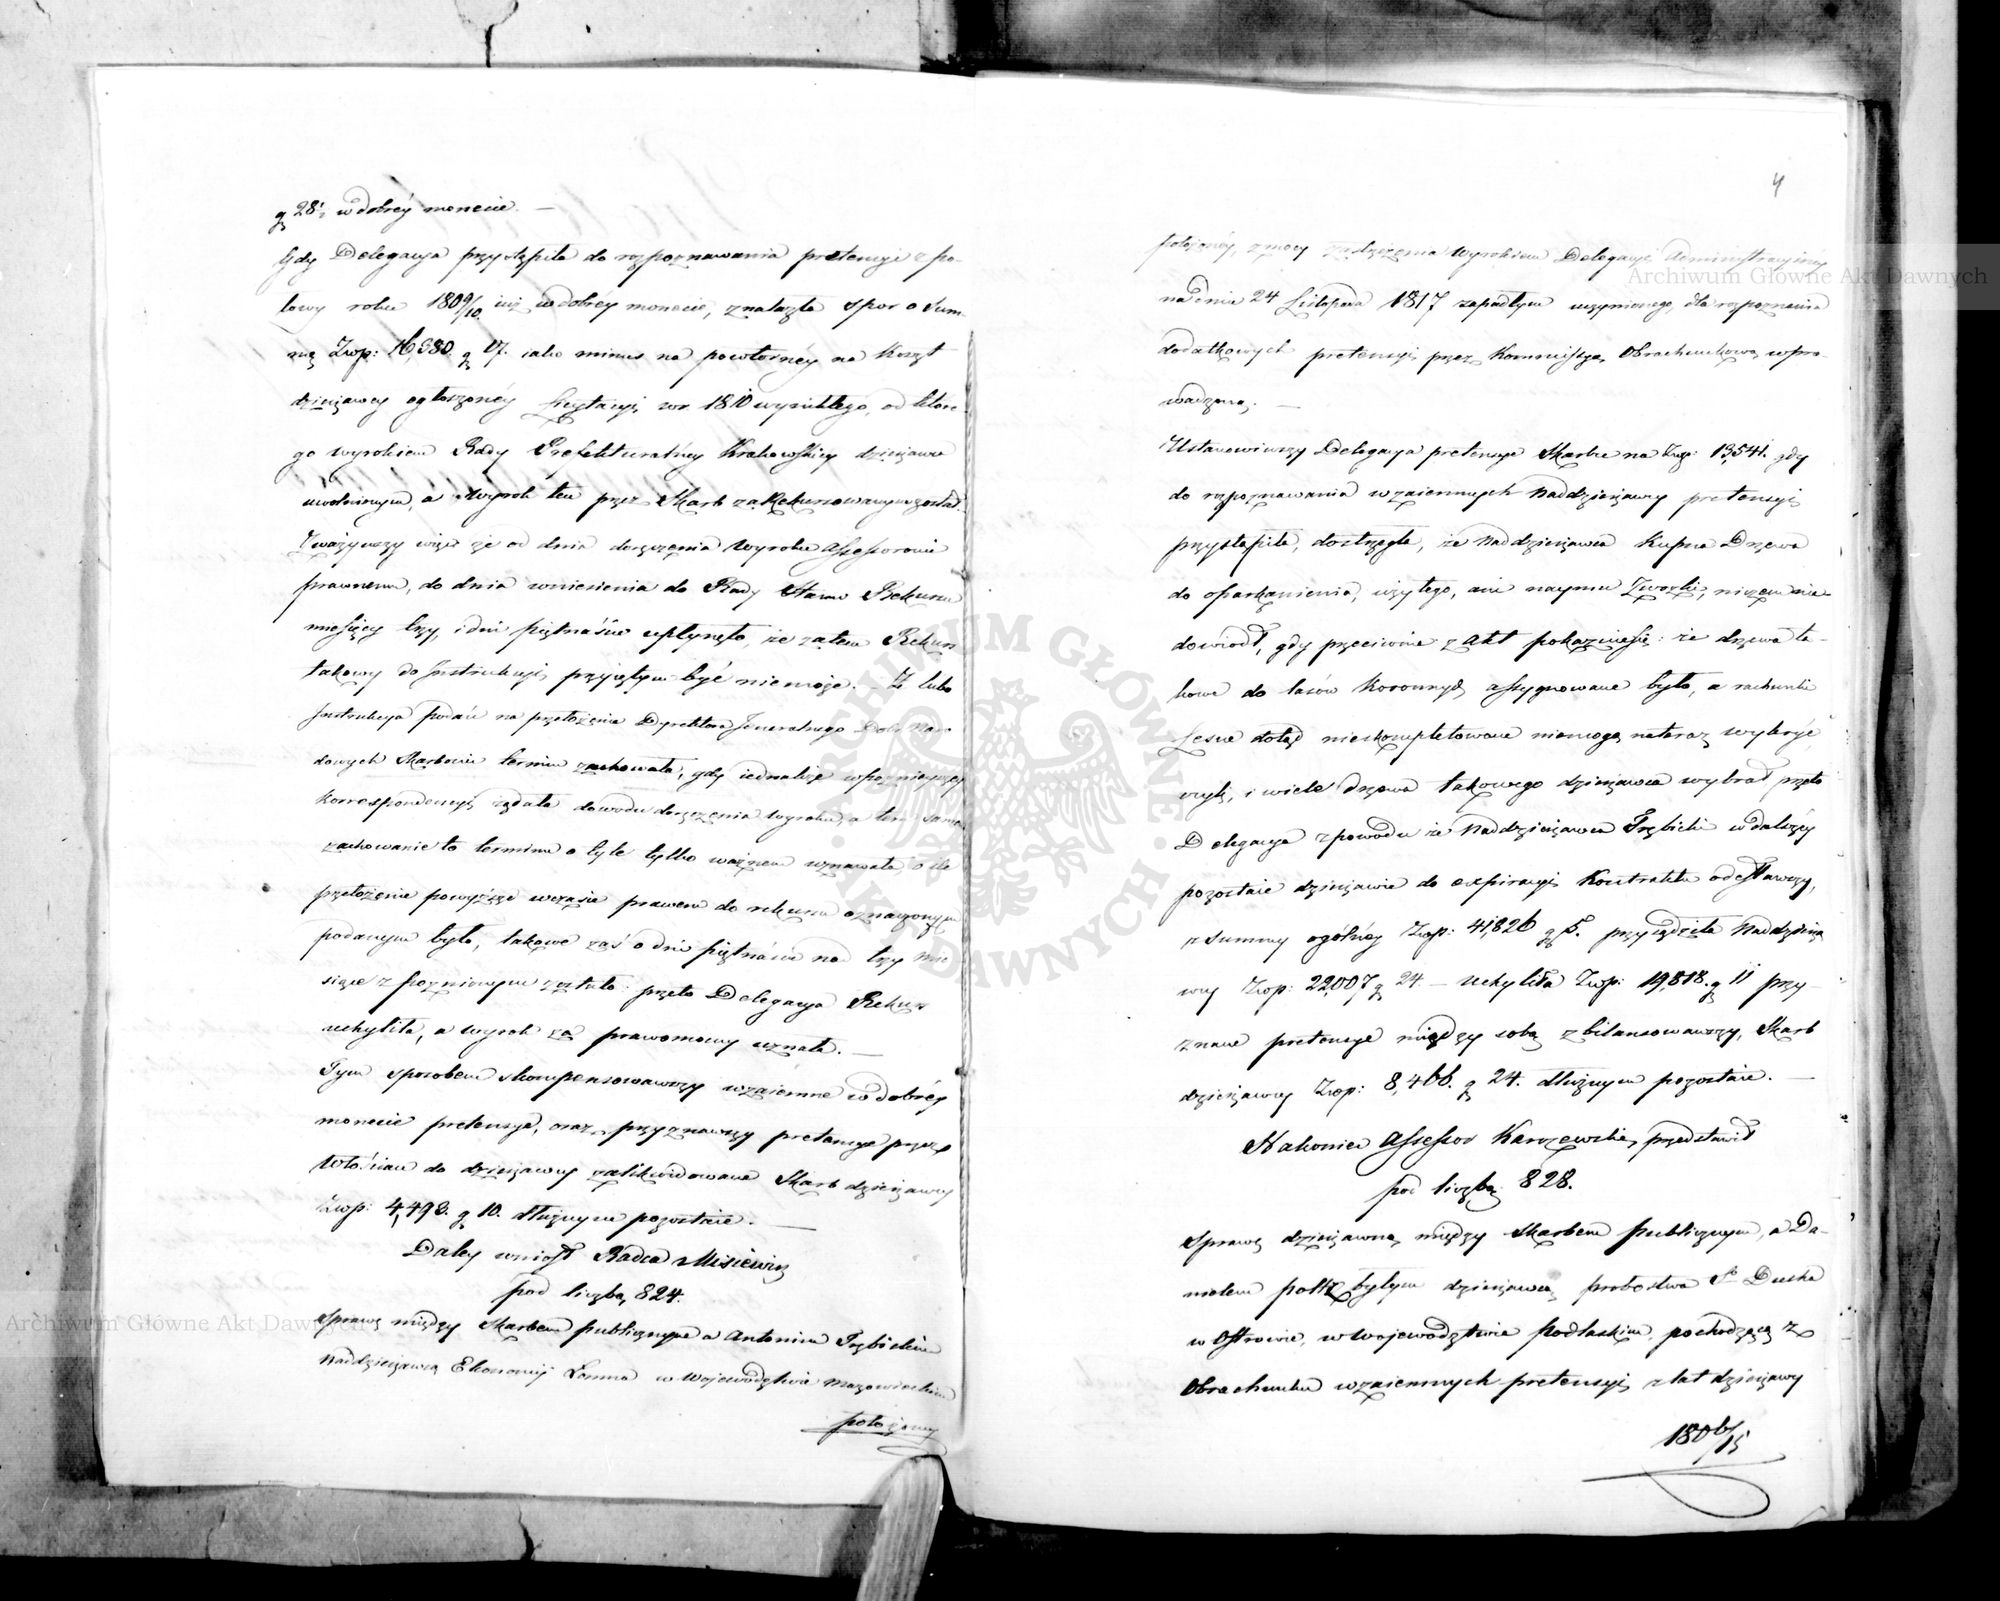 g 28½ w dobréy monecie. —
Gdy Delegacya przystąpiła do rozpoznawania pretensyi z po-
łowy roku 1809/10. iuż w dobréy monecie, znalazła spor o Sum-
mę Zwp: 16,980. g 17. iako minus na powtórnéy na koszt
dzierżawcy ogłoszonéy Licytacyi w r. 1810 wynikłego, od które-
go wyrokiem Rady Prefekturalnéy Krakowskiéy dzierżawca
uwolnionym, a Wyrok ten przez Skarb zarekursowanym został.
Zważywszy więc że od dnia doręczenia Wyroku Assessorowi
prawnemu, do dnia wniesienia do Rady Stanu Rekursu
miesięcy trzy, i dni piętnaście upłynęło, że zatem Rekurs
takowy do Instrukcyi przyiętym być niemoże. — Że lubo
Instrukcya podaie na przełożenie Dyrektora Jeneralnego Dobr Naro-
dowych Skarbowi termin zachowała, gdy iednakże w poznieyszéy
korrespondencyi żądała dowodu doręczenia wyroku, a tem samem
zachowanie to terminu o tyle tylko ważnem uznawała, o ile
przełożenie powyższe w czasie prawem do rekursu oznaczonym
podanym było, takowe zaś o dni piętnaście nad trzy mie-
siące z poznionym zostało: przeto Delegacya Rekurs
uchyliła, a wyrok za prawomocny uznała. —
Tym sposobem skompensowawszy wzaiemne w dobréy
monecie pretensye, oraz przyznawszy pretensye przez
Włościan do dzierżawcy zalikwidowane Skarb dzierżawcy
Zwp: 4,498. g 10. dłużnym pozostaie. —
Daléy wniosł Radca Misiewicz
pod liczbą 824.
Sprawę między Skarbem publicznym a Antonim Trębickim
Naddzierżawcą Ekonomii Łomna w Województwie Mazowieckim
położonéy
4
położonéy, z mocy zastrzeżenia Wyrokiem Delegacyi Administracyinéy
na dniu 24 Listopada 1817 zapadłym uczynionego, dla rozpoznania
dodatkowych pretensyi przez Kommissyą Obrachunkową wpro-
wadzoną. —
Ustanowiwszy Delegacya pretensye Skarbu na Zwp: 13,541. gdy
do rozpoznawania wzaiemnych Naddzierżawcy pretensyi
przystąpiła, dostrzegła, że Naddzierżawca kupna Drzewa
do oparkanienia, użytego, ani naymu Zwozki, niczem nie-
dowiodł, gdy przeciwnie z akt pokazuie się: że drzewo ta-
kowe do lasów Koronnych assygnowane było, a rachunki
Leśne dotąd nieskompletowane niemogą na teraz wykryć
czyli, i wiele drzewa takowego dzierżawca wybrał przeto
Delegacya z powodu że Naddzierżawca Trębicki w dalszéy
pozostaie dzierżawie do expiracyi Kontraktu odesławszy,
z summy ogólnéy Zwp: 41,826 g 5. przysądziła Naddzierża
wcy Zwp: 22,007 g 24. — uchyliła Zwp: 19,818. g 11 przy-
znane pretensye między sobą zbilansowawszy, Skarb
dzierżawcy Zwp: 8,466. g 24. dłużnym pozostaie. —
Nakoniec Assessor Karczewski, przedstawił
pod liczbą 828.
Sprawę dzierżawną między Skarbem publicznym, a Da-
małem byłym dzierżawcą probostwa S° Ducha
w Ostrowie, w Województwie Podlaskim, pochodzącą z
Obrachunku wzaiemnych pretensyi z lat dzierżawy
1806/15
Archiwum Główne Akt Dawnych
Archiwum Główne Akt Dawnych
ARCHIWUM GŁÓWNE AKT DAWNYCH